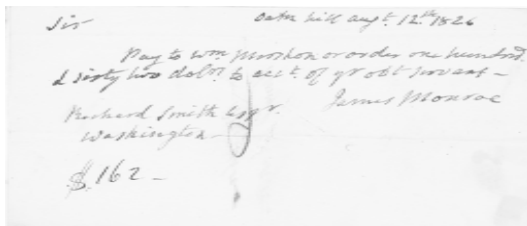 Sir Oak hill augt. 12th. 1826
Pay to Wm or order one hundred
& sixty two dolrs. to acct. of yr obt servant –
James Monroe
Richard Smith esqr.
Washington
$.162 –